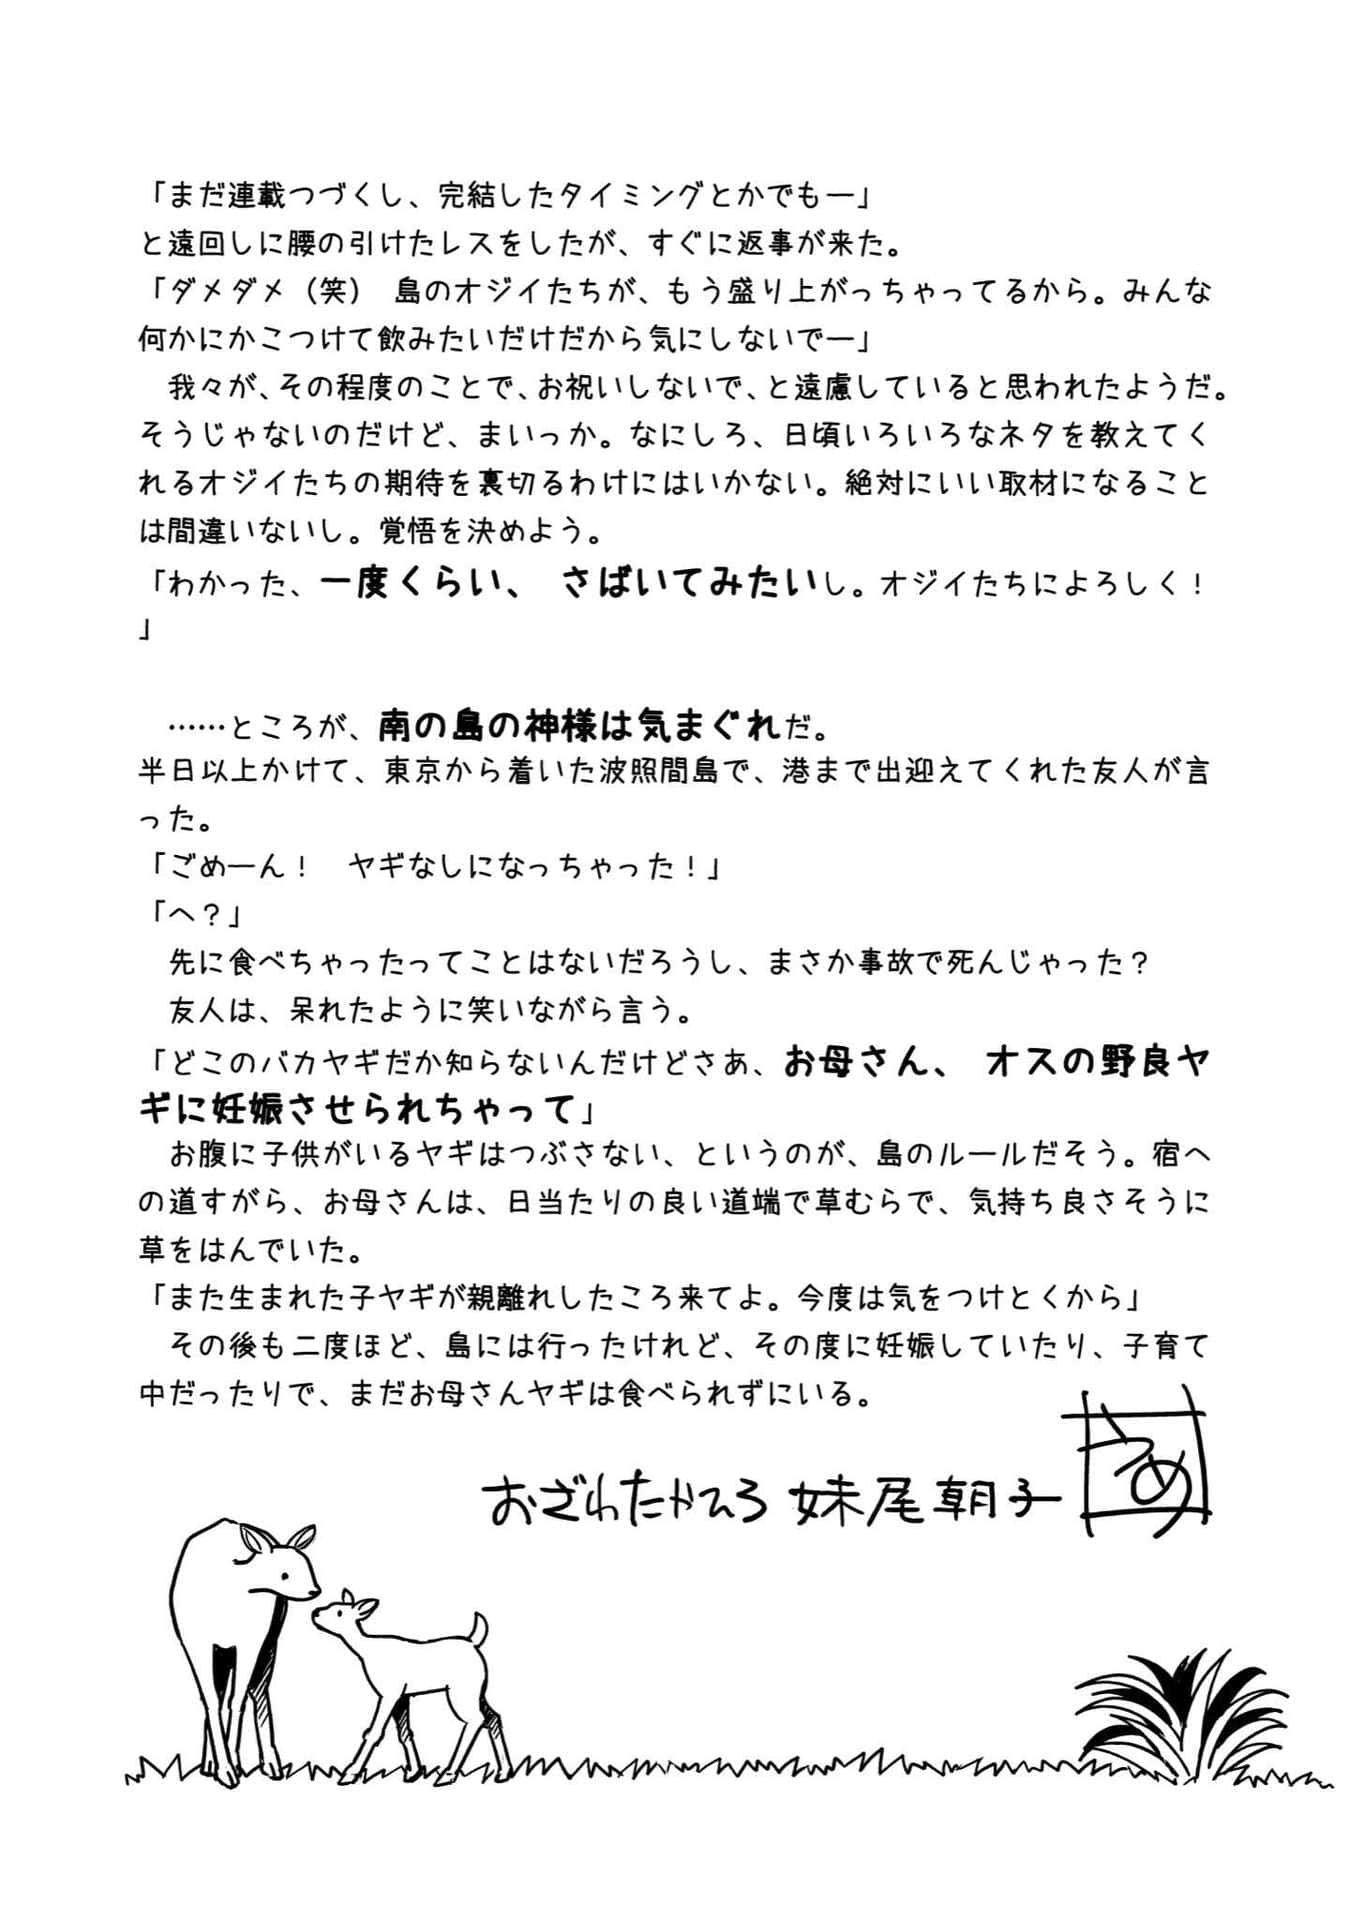 「まだ連載つづくし、完結したタイミングとかでもー」
と遠回しに腰の引けたレスをしたが、すぐに返事が来た。
「ダメダメ（笑）　島のオジイたちが、もう盛り上がっちゃってるから。みんな
何かにかこつけて飲みたいだけだから気にしないでー」
　我々が、その程度のことで、お祝いしないで、と遠慮していると思われたようだ。
そうじゃないのだけど、まいっか。なにしろ、日頃いろいろなネタを教えてく
れるオジイたちの期待を裏切るわけにはいかない。絶対にいい取材になること
は間違いないし。覚悟を決めよう。
「わかった、一度くらい、さばいてみたいし。オジイたちによろしく！
」
　……ところが、南の島の神様は気まぐれだ。
半日以上かけて、東京から着いた波照間島で、港まで出迎えてくれた友人が言
った。
「ごめーん！　ヤギなしになっちゃった！」
「へ？」
　先に食べちゃったってことはないだろうし、まさか事故で死んじゃった？
　友人は、呆れたように笑いながら言う。
「どこのバカヤギだか知らないんだけどさあ、お母さん、オスの野良ヤ
ギに妊娠させられちゃって」
　お腹に子供がいるヤギはつぶさない、というのが、島のルールだそう。宿へ
の道すがら、お母さんは、日当たりの良い道端で草むらで、気持ち良さそうに
草をはんでいた。
「また生まれた子ヤギが親離れしたころ来てよ。今度は気をつけとくから」
　その後も二度ほど、島には行ったけれど、その度に妊娠していたり、子育て
中だったりで、まだお母さんヤギは食べられずにいる。
おざわたかひろ 妹尾朝子 うめ